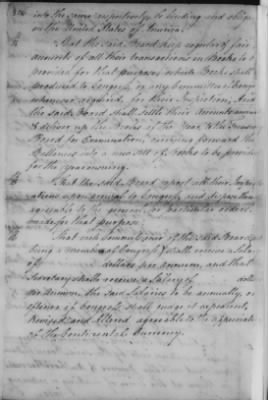 into the same respectively, to binding and obliga
on the United States of America.
That the said Board keep regular & fair
accounts of all their transactions in Books to be
provided for that purpose, which Books shall be
produced to Congress, or any Committee of Congress
whenever required, for their Inspection, and
the said Board shall settle their Accounts annually
& deliver up the Books of the Year to the Treasury
Board for Examination, carrying forward the
Ballances into a new sett of Books to be provided
for the year ensuing.
That the said Board report all their
upon arrival to Congress, and dispose them
agreeable to the general or particular orders
made for that purpose.
That each Commissioner of the said Board, not
being a member of Congress, shall receive a Salary
of dollars per annum, and that
Secretary shall receive a Salary of dolls
per Annum, the said Salaries to be annually, or
oftener as Congress shall judge it expedient,
revised and altered agreeable to the
of the Continental Currency.